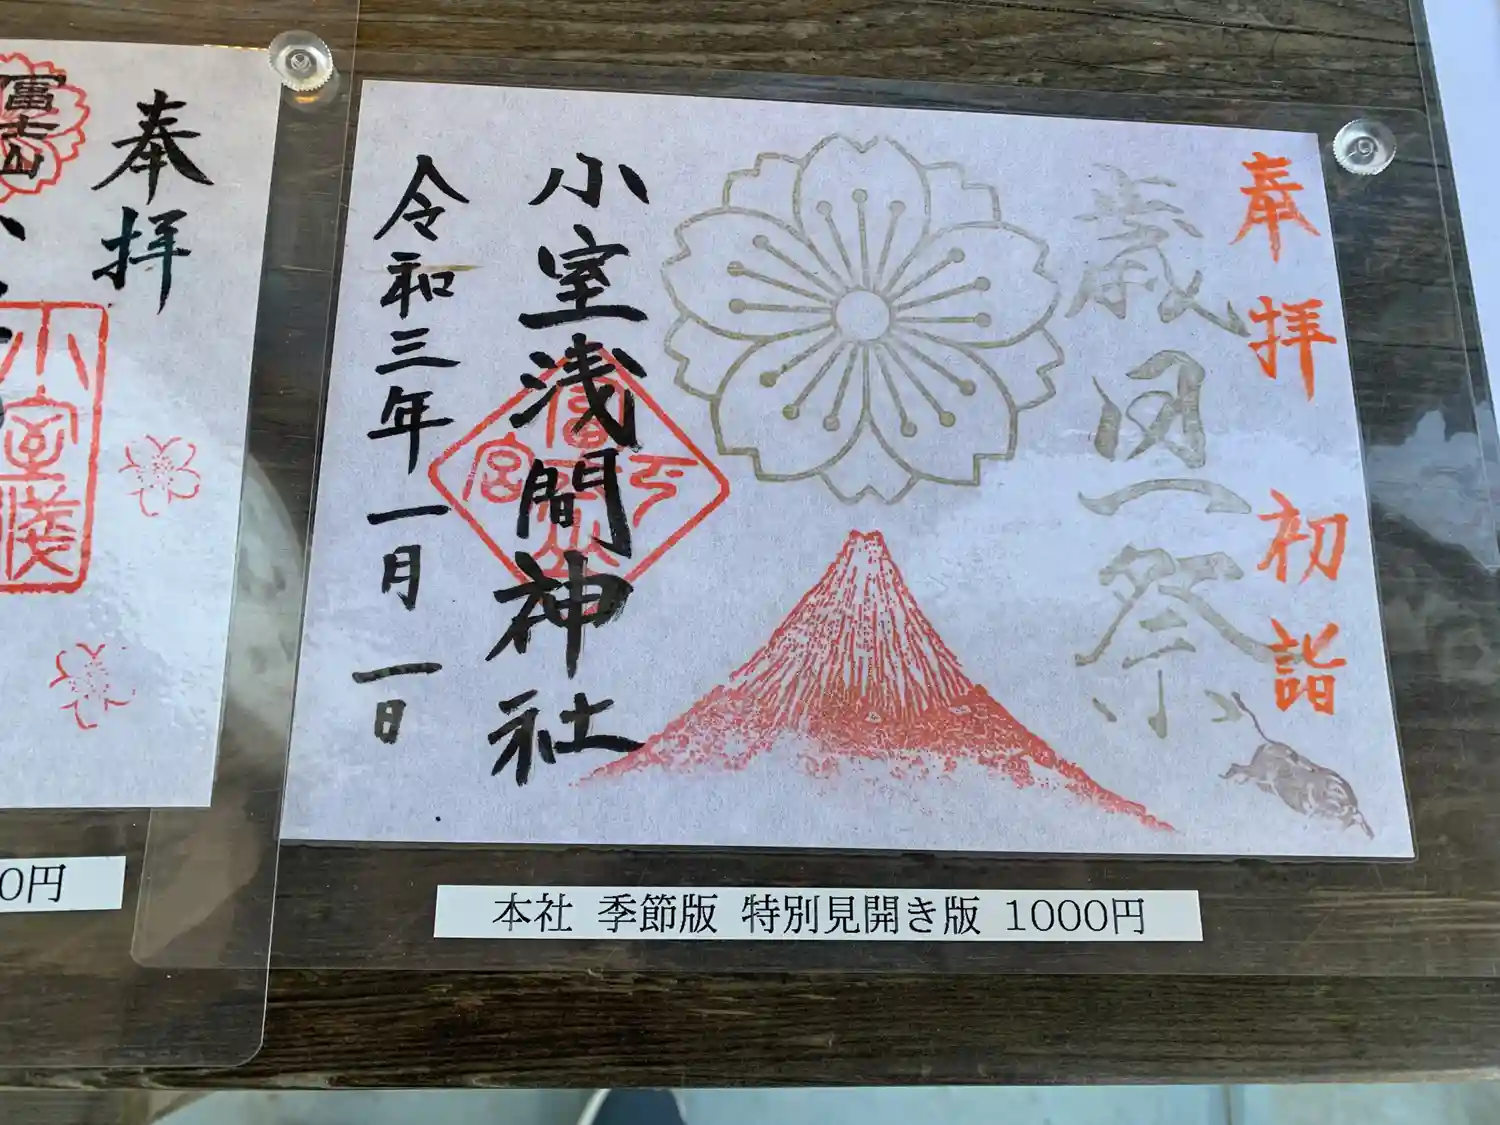 奉拝 初詣
歳旦祭
小室浅間神社
令和三年一月一日
本社 季節版 特別見開き版 1000円
奉拝
富士山
小室
0円